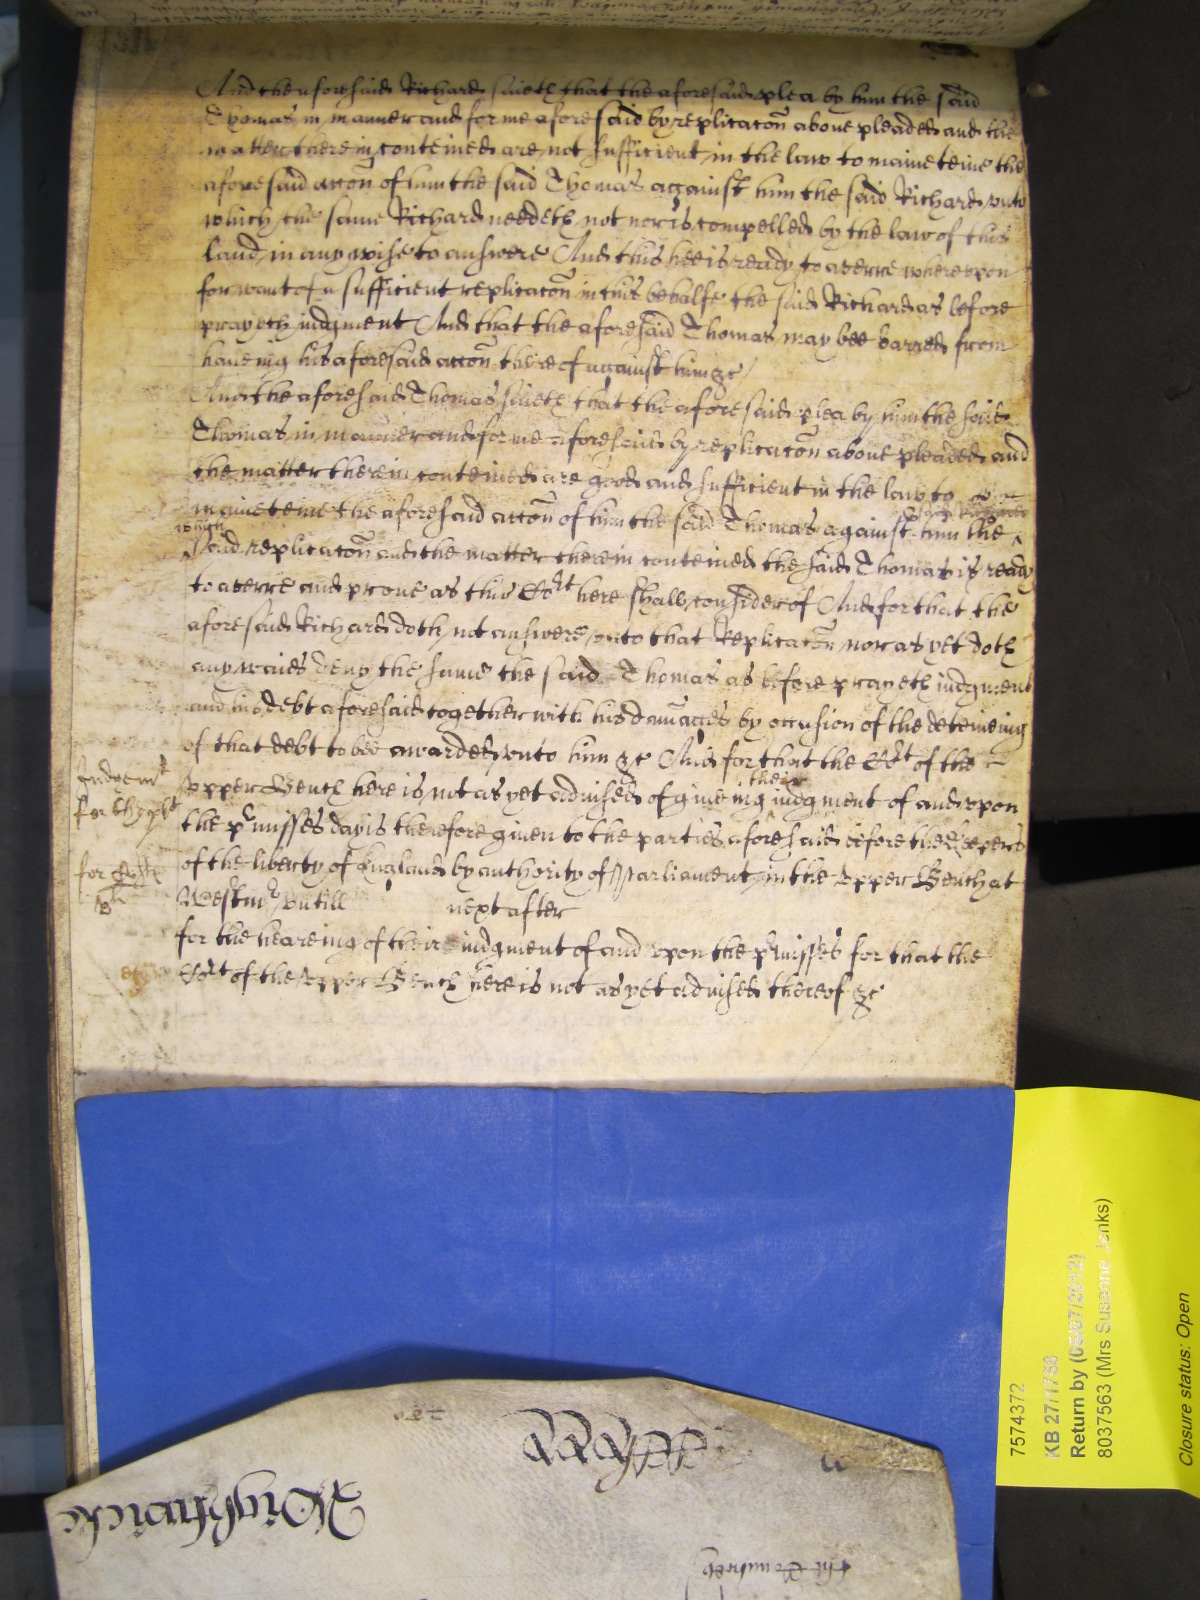 And the aforesaid Richard saieth that the aforesaid plea by him the said
Thomas in manner and forme aforesaid by replicacon above pleaded and the
matter therein conteined are not sufficient in the law to maineteine the
aforesaid accon of him the said Thomas against him the said Richard unto
which the same Richard needeth not nor is compelled by the law of this
land in any wise to answere And this hee is ready to averre whereupon
for want of a sufficient replicacon in this behalfe the said Richard as before
prayeth judgment And that the aforesaid Thomas may bee barred from
haveing his aforesaid accon thereof against him &c
And the aforesaid Thomas saieth that the aforesaid plea by him the said
Thomas in manner and forme aforesaid by replicacon above pleaded and
the matter therein conteined are good and sufficient in the law to
maineteine the aforesaid accon of him the said Thomas against him the
said Richard
which
said replicacon and the matter therein conteined the said Thomas is ready
to averre and prove as this Cort here shall consider of And for that the
aforesaid Richard doth not answere unto that Replicacon nor as yet doth
any waies deny the same the said Thomas as before prayeth judgment
and his debt aforesaid together with his damages by occasion of the deteineing
of that debt to bee awarded unto him &c And for that the Cort of the
Upper Bench here is not as yet advised of giveing their judgment of and upon
the pr'misses day is therefore given to the parties aforesaid before the Keepers
of the liberty of England by authority of Parliament in the Upper Bench at
Westmr untill next after
for the heareing of their judgment of and upon the pr'misses for that the
Cort of the Upper Bench here is not as yet advised thereof &c
Judgemt
for the plt
for
Wightwicke
7574372
KB 27/1768
Return by (05/07/2012)
8037563 (Mrs Susanne Jenks)
Closure status: Open